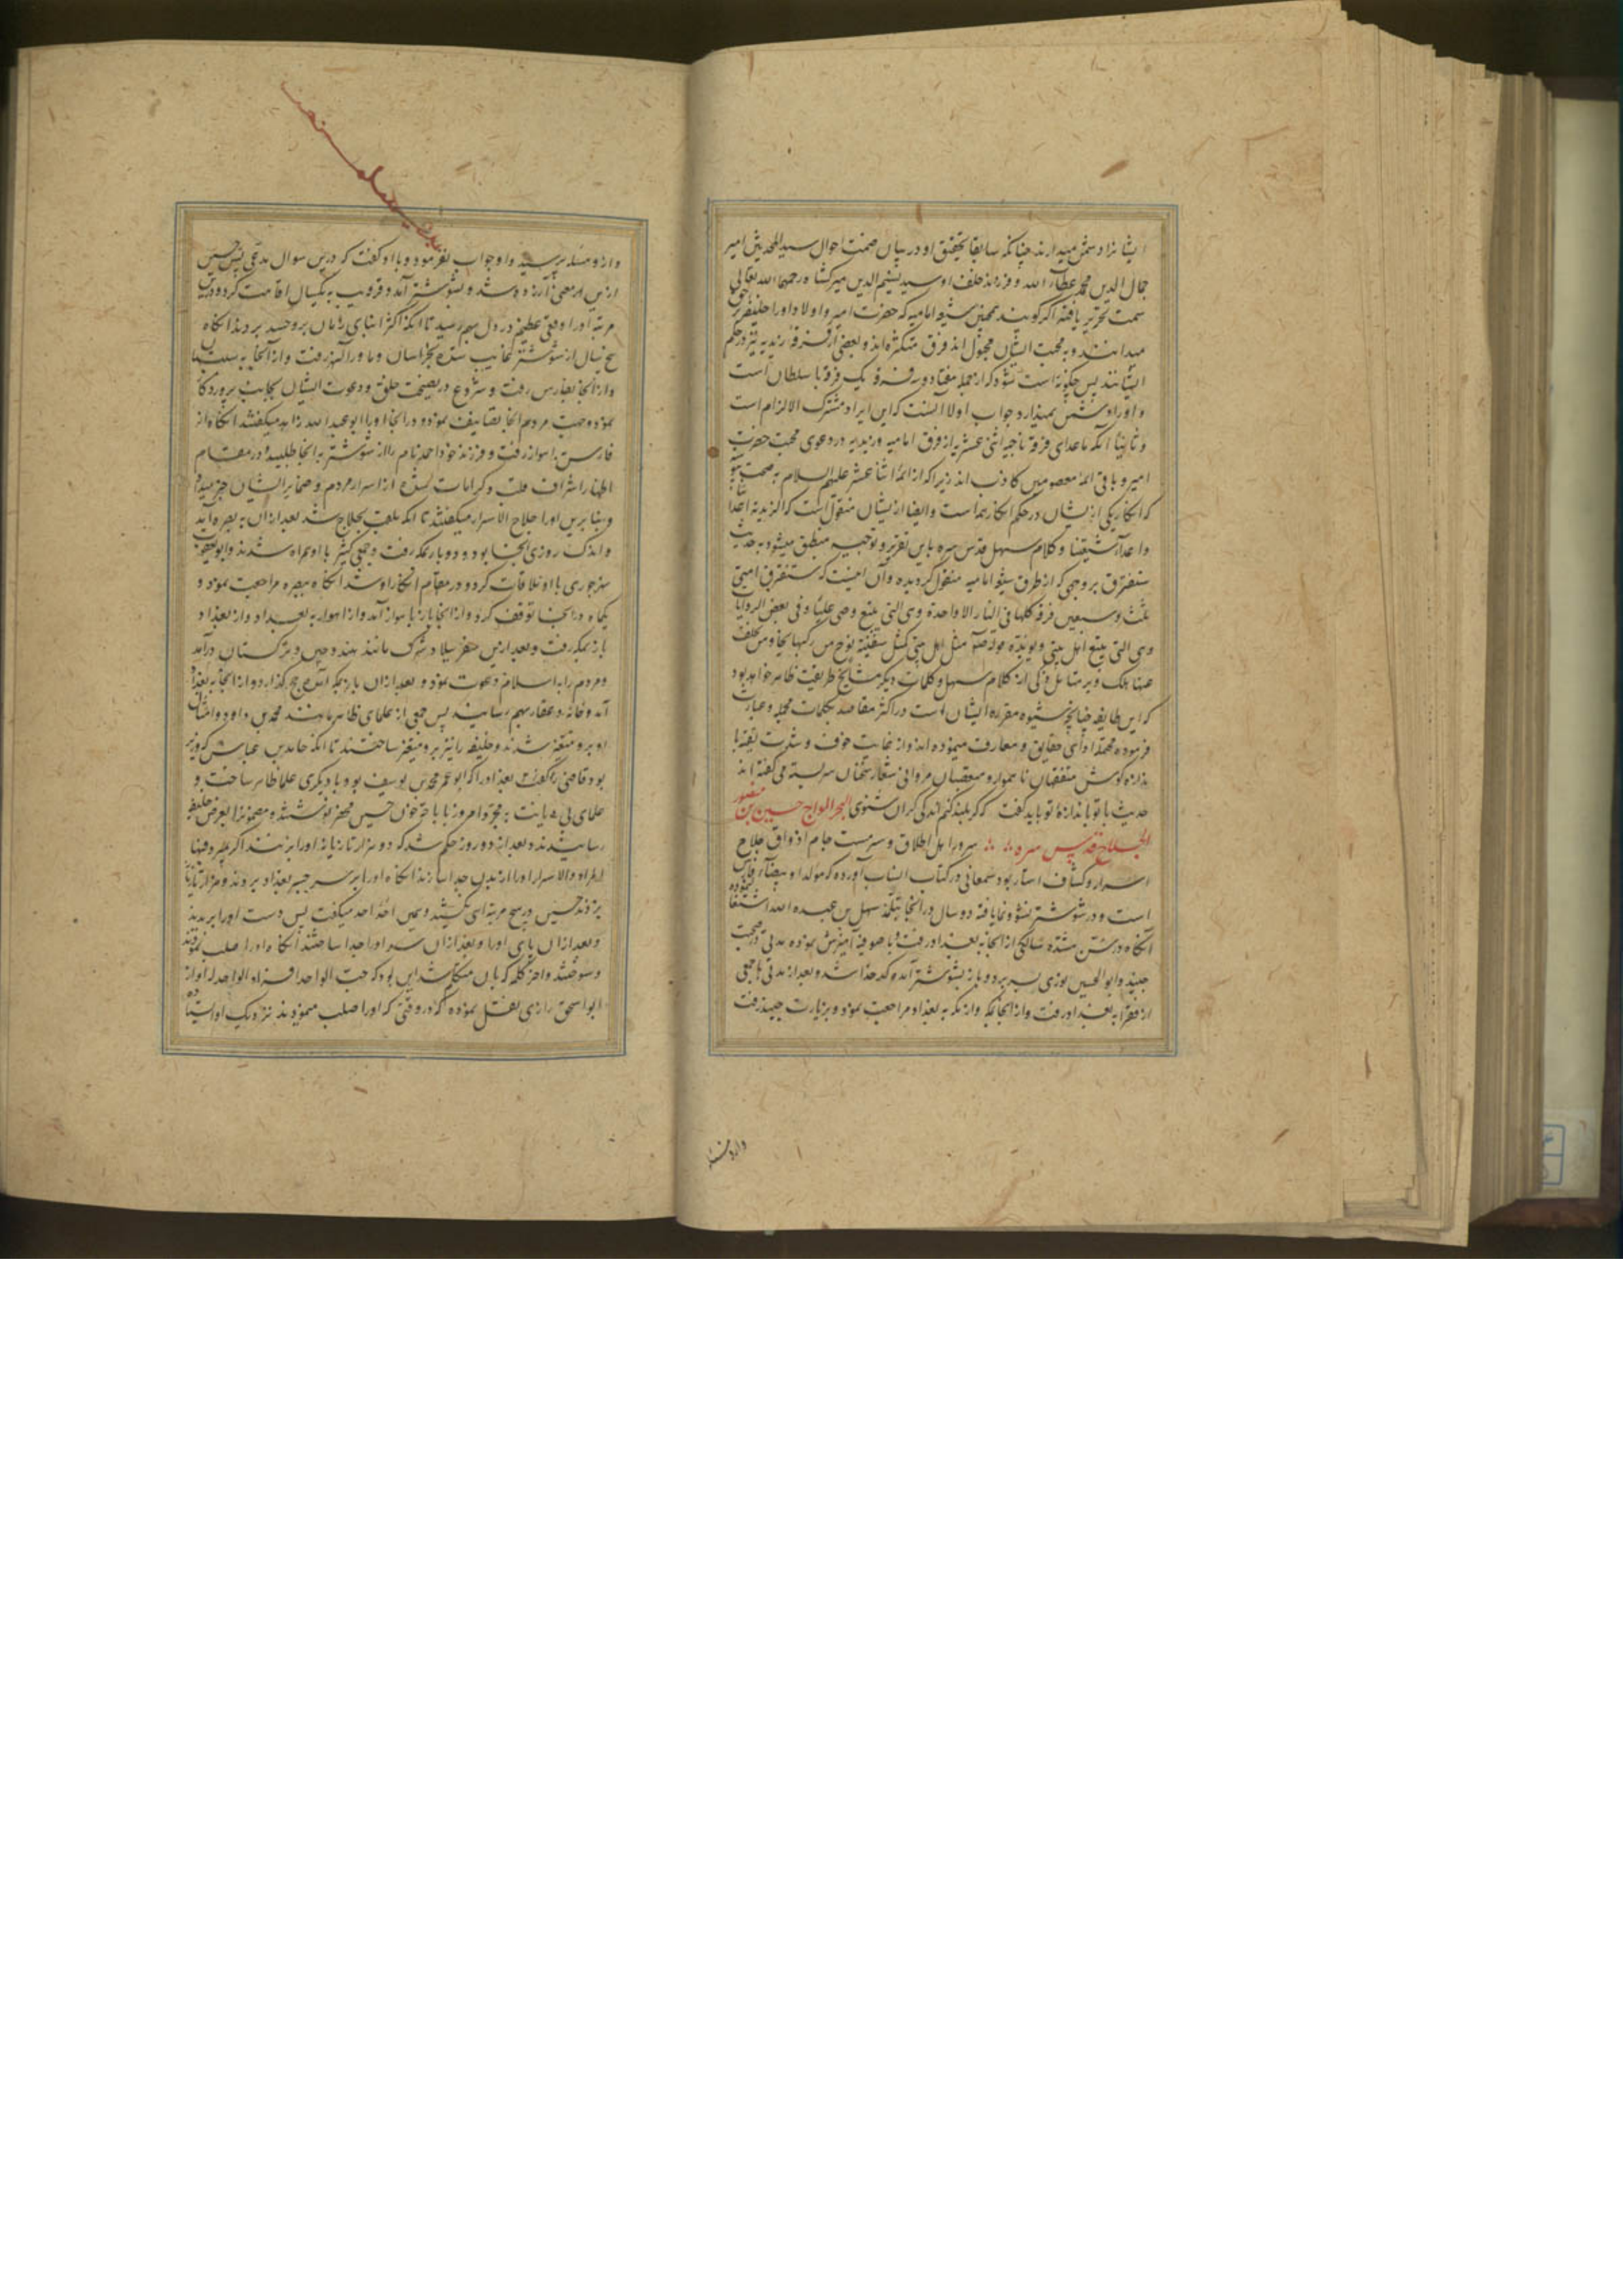 ایشانرا دشمن میدارند چنانکه سابقا بتحقیق او در بیان صحت احوال سید المحدثین امیر
جمال الدین محمد عطاء الله و فرزند خلف او سید نسیم الدین میرکشاه رحمهما الله تعالی
سمت تحریر یافته اگر گویند همچنین شیعه امامیه که حضرت امیر و اولاد او را خلیفه بحق
میدانند و به محبت ایشان مجبول اند فرق متکثره اند و بعضی از فرقه زیدیه نیز در حکم
ایشانند پس چگونه است شود که از جمله هفتاد و سه فرقه یک فرقه با سلطان است
و او را دشمن میدارد جواب اولا آنست که این ایراد مشترک الالزام است
و ثانیا آنکه ماعدای فرقه ناجیه اثنی عشریه از فرق امامیه و زیدیه در دعوی محبت حضرت
امیر و باقی ائمه معصومین کاذب اند زیرا که از ائمه اثنا عشر علیهم السلام به صحت پیوسته
که انکار یکی از ایشان در حکم انکار همه است و ایضا از ایشان منقول است که الزیدیة اعدانا
و اعداء شیعتنا و کلام سهل قدس سره باین تقریر و توجیه منطبق میشود به حدیث
ستفترق بر وجهی که از طرق شیعه امامیه منقول گردیده و آن اینست که ستفترق امتی
ثلث و سبعین فرقة کلها فی النار الا واحدة وهی التی یتبع وصی علیا و فی بعض الروایات
وهی التی یتبع اهل بیتی و یؤیده قوله صم مثل اهل بیتی کمثل سفینة نوح من رکبها نجا و من تخلف
عنها هلک و بر متامل ذکی از کلام سهل و کلمات دیگر مشایخ طریقت ظاهر خواهد بود
که این طایفه چنانچه شیوه مقرره ایشان است در اکثر مقاصد بکلمات مجمله و عبارت
فرموده مهمله ادای حقایق و معارف مینموده اند و از غایت خوف و شدت تقیه با
اندازه گوش متفقهان ناهموار و متعصبان مروانی شعار سخنان سربسته می گفته اند
حدیث با تو باندازه تو باید گفت که گر بلند کنم اندکی گران شنوی البحر المواج حسین بن منصور
الحلاج قدس سره سرور اهل اطلاق و سرمست جام اذواق حلاج
اسرار و کشاف استار بود سمعانی در کتاب انساب آورده که مولد او بیضاء فارس
است و در شوشتر نشو و نما یافته دو سال در انجا بتلمذ سهل بن عبد الله اشتغال نموده
آنگاه در سن هیجده سالگی از انجا به بغداد رفت و با صوفیه آمیزش نموده مدتی در صحبت
جنید و ابو الحسین نوری بسر برد و باز بشوشتر آمد و کدخدا شد و بعد از مدتی با جمعی
از فقرا به بغداد رفت و از انجا بمکه و از مکه به بغداد مراجعت نمود و بزیارت جنید رفت
و از و مسئله
و از و مسئله پرسید و او جواب نفرمود و با او گفت که درین سوال مدعی پس حسین
ازین معنی آزرده شد و بشوشتر آمد و قریب به یکسال اقامت کرد و درین
مرتبه او را وقعی عظیم در دل مردم بهم رسید تا انکه اکثر ابنای زمان برو حسد بردند انگاه
پنج سال از شوشتر غایب شده بخراسان و ماورا النهر رفت و از انجا به سیستان
و از انجا بفارس رفت و شروع در نصیحت خلق و دعوت ایشان بجانب پروردگار
نمود و جهت مردم انجا تصانیف نمود و در انجا او را ابو عبد الله زاهد میگفتند انگاه از
فارس باهواز رفت و فرزند خود احمد نام را از شوشتر به انجا طلبید و در مقام
اظهار اشراف قلب و کرامات شده از اسرار مردم و ضمایر ایشان خبر میداد
و بنا برین او را حلاج الاسرار میگفتند تا انکه ملقب بحلاج شد بعد ازان به بصره آمد
و اندک روزی انجا بود و دوباره بمکه رفت و جمعی کثیر با او همراه شدند و ابو یعقوب
نهرجوری با او ملاقات کرد و در مقام انکار او شد انگاه ببصره مراجعت نمود و
یکماه در انجا توقف کرد و از انجا باز باهواز آمد و از اهواز به بغداد و از بغداد
باز بمکه رفت و بعد ازین سفر ببلاد شرک مانند هند و چین و ترکستان درآمد
و مردم را به اسلام دعوت نمود و بعد ازان باز بمکه آمده حج گذارد و از انجا به بغداد
آمد و خانه و عقار بهم رسانید پس جمعی از علمای ظاهر مانند محمد بن داود و امثال
او برو متغیر شدند و خلیفه را نیز برو متغیر ساختند تا انکه حامد بن عباس که وزیر
بود قاضی بغداد را که ابو عمر محمد بن یوسف بود با دیگری علما ظاهر ساخت و
علمای بی دیانت به مجرد امروز با باحت خون حسین محضر نوشتند و مضمونرا بعرض خلیفه
رسانیدند و بعد از دو روز حکم شد که دو هزار تازیانه او را بزنند اگر بمیرد فبها
المراد و الا سر او را از بدن جدا سازند انگاه او را بر سر جسر بغداد بردند و هزار تازیانه
بزدند حسین در هیچ مرتبه آی نکشید و همین احد احد میگفت پس دست او را بریدند
و بعد ازان پای او را و بعد ازان سر او را جدا ساختند انگاه او را صلب نمودند
و سوختند و آخر کلمه که بان متکلم شد این بود که حسب الواحد افراد الواحد له و از
ابو اسحق رازی نقل نموده که در وقتی که او را صلب مینمودند نزدیک او ایستاده